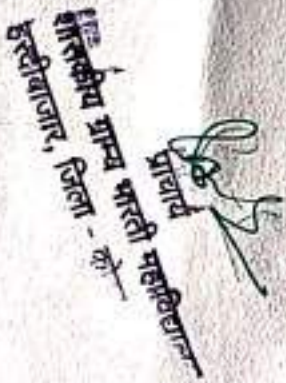 प्राचार्य
शासकीय ग्राम्य भारती महाविद्यालय
हरदीबाजार, जिला - को